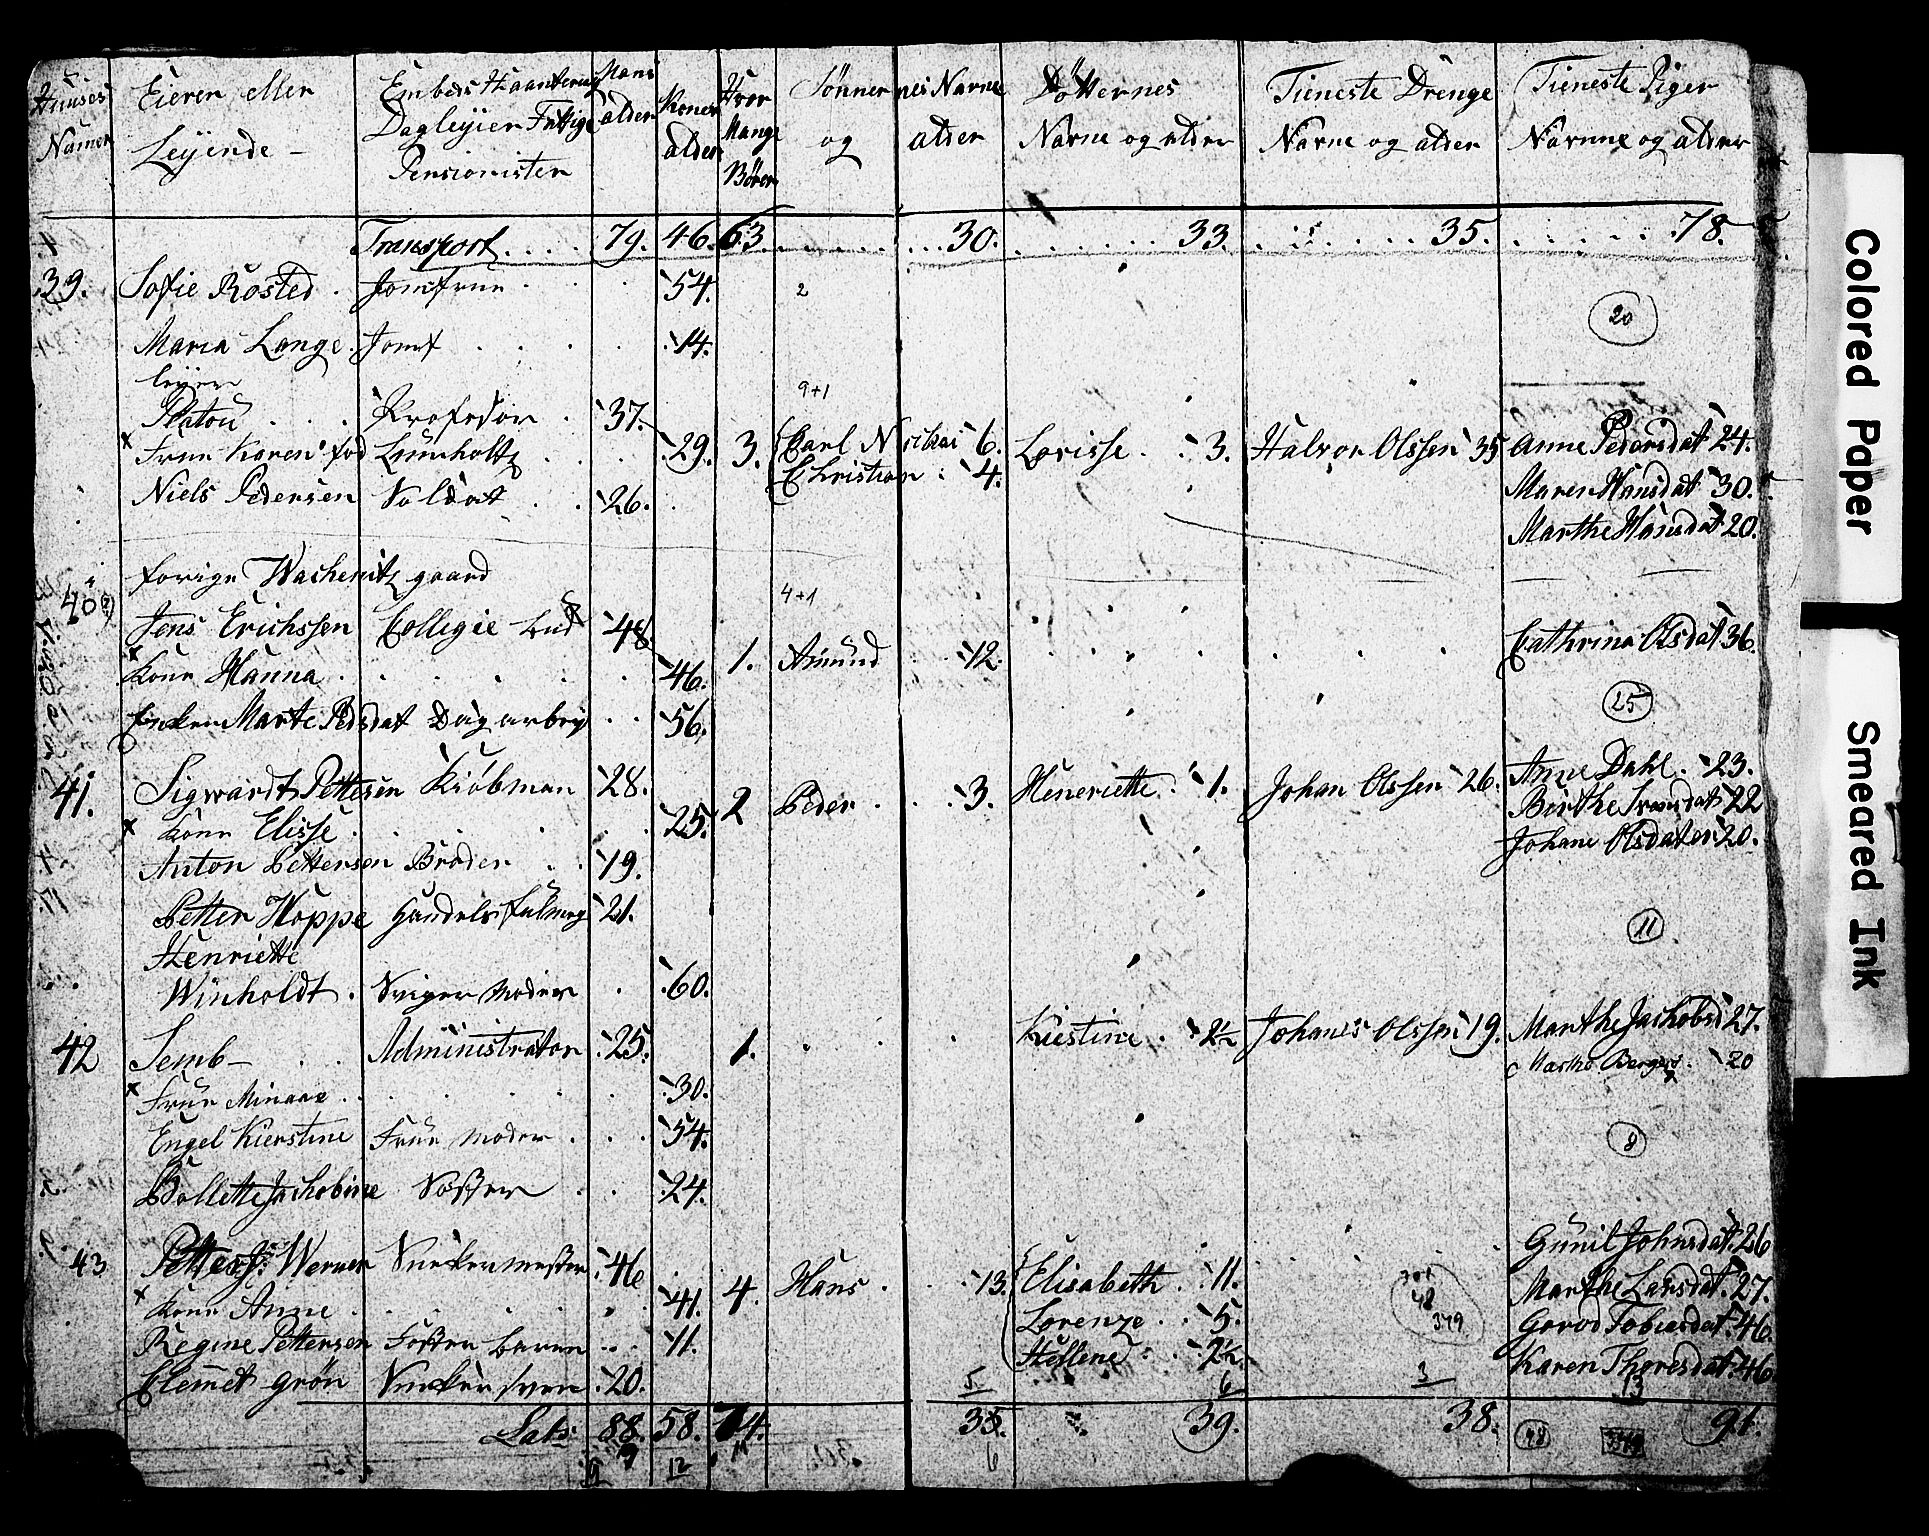 Huuses Eieren eller Embeds Haantering Mans Koner Hvor Sønnernes Navne Døtternes Tieneste Drenge Tieneste Piger
Numer Leyende – Dagleyier Fattige alder alder Mange og alder Navne og alder Navne og alder Navnne og alder
Pensionister Børn
Transport . . . . 79. 46. 63 . . . . . . . . 30. . . . . . . 33. . . . . . . 35. . . . . . 78.
39. Sofie Rosted . Jomfrue . . . . 54. 2
20
Maria Lange . Jomf . . . . . 14.
leyer
9+1
Platou . . . . Profesor . 37.
x Frue Karen fød Lumholtz . . . . 29. 3. Carl Nicolai 6. Lovisse . . 3. Halvor Olssen 35 Anne Pedersdat 24.
Christian . 4.
Niels Pedersen Soldat . . 26. Maren Hansdat 30.
Marthe Hansdat 20.
forige Wachenitz gaard
40 4+1
Jens Erichssen Collegie bud 48 Cathrina Olsdat 36.
x Kone Hanna . . . . . . 46. 1. Amund . . 12.
25
Enken Marte Pedsdat Dagarbey . . 56.
41. Sigwardt Pettersen Kiøbman 28. 2 Peder . . . 3. Heneriette . 1. Johan Olssen 26. Anne Dahl . 23.
x Kone Elisse . . . . . . 25. Birthe Iversdat 22
Johane Olsdater 20.
Anton Pettersen Broder . . 19.
Petter Hoppe Handelsfulmeg 21.
11
Henriette
Winholdt . Sviger moder . . 60.
42 Semb – . . Administrator . 25. 1. . . Kiestine . 2½ Johanes Olssen 19. Marthe Jachobsd 27.
Marthe Bergers . 20
x Frue Minaae . . . . . . 30.
Engel Kierstine Frue moder . . . 54.
8
Bollette Jachobine Søster . . . 24.
Gunil Johnsdat. 26
43 Petter Js: Werner Snekermester . 46 4. Hans . . . 13. Elisabeth . 11. Marthe Larsdat. 27.
x Kone Anne . . . . . . 41. Lorenze . . 5. Gorod Tobiesdat. 46.
301
48
349
Regine Pettersen Foster barn . . . 11. Hellene . . 2½. Karen Thoresdat. 46
Clemet grøn Snekersven . 20. 5 6 3 13
Lats 88. 58. 74. 35. 39. 38. 48 349 91.
9 12 11 6
Colored Paper
Smeared Ink